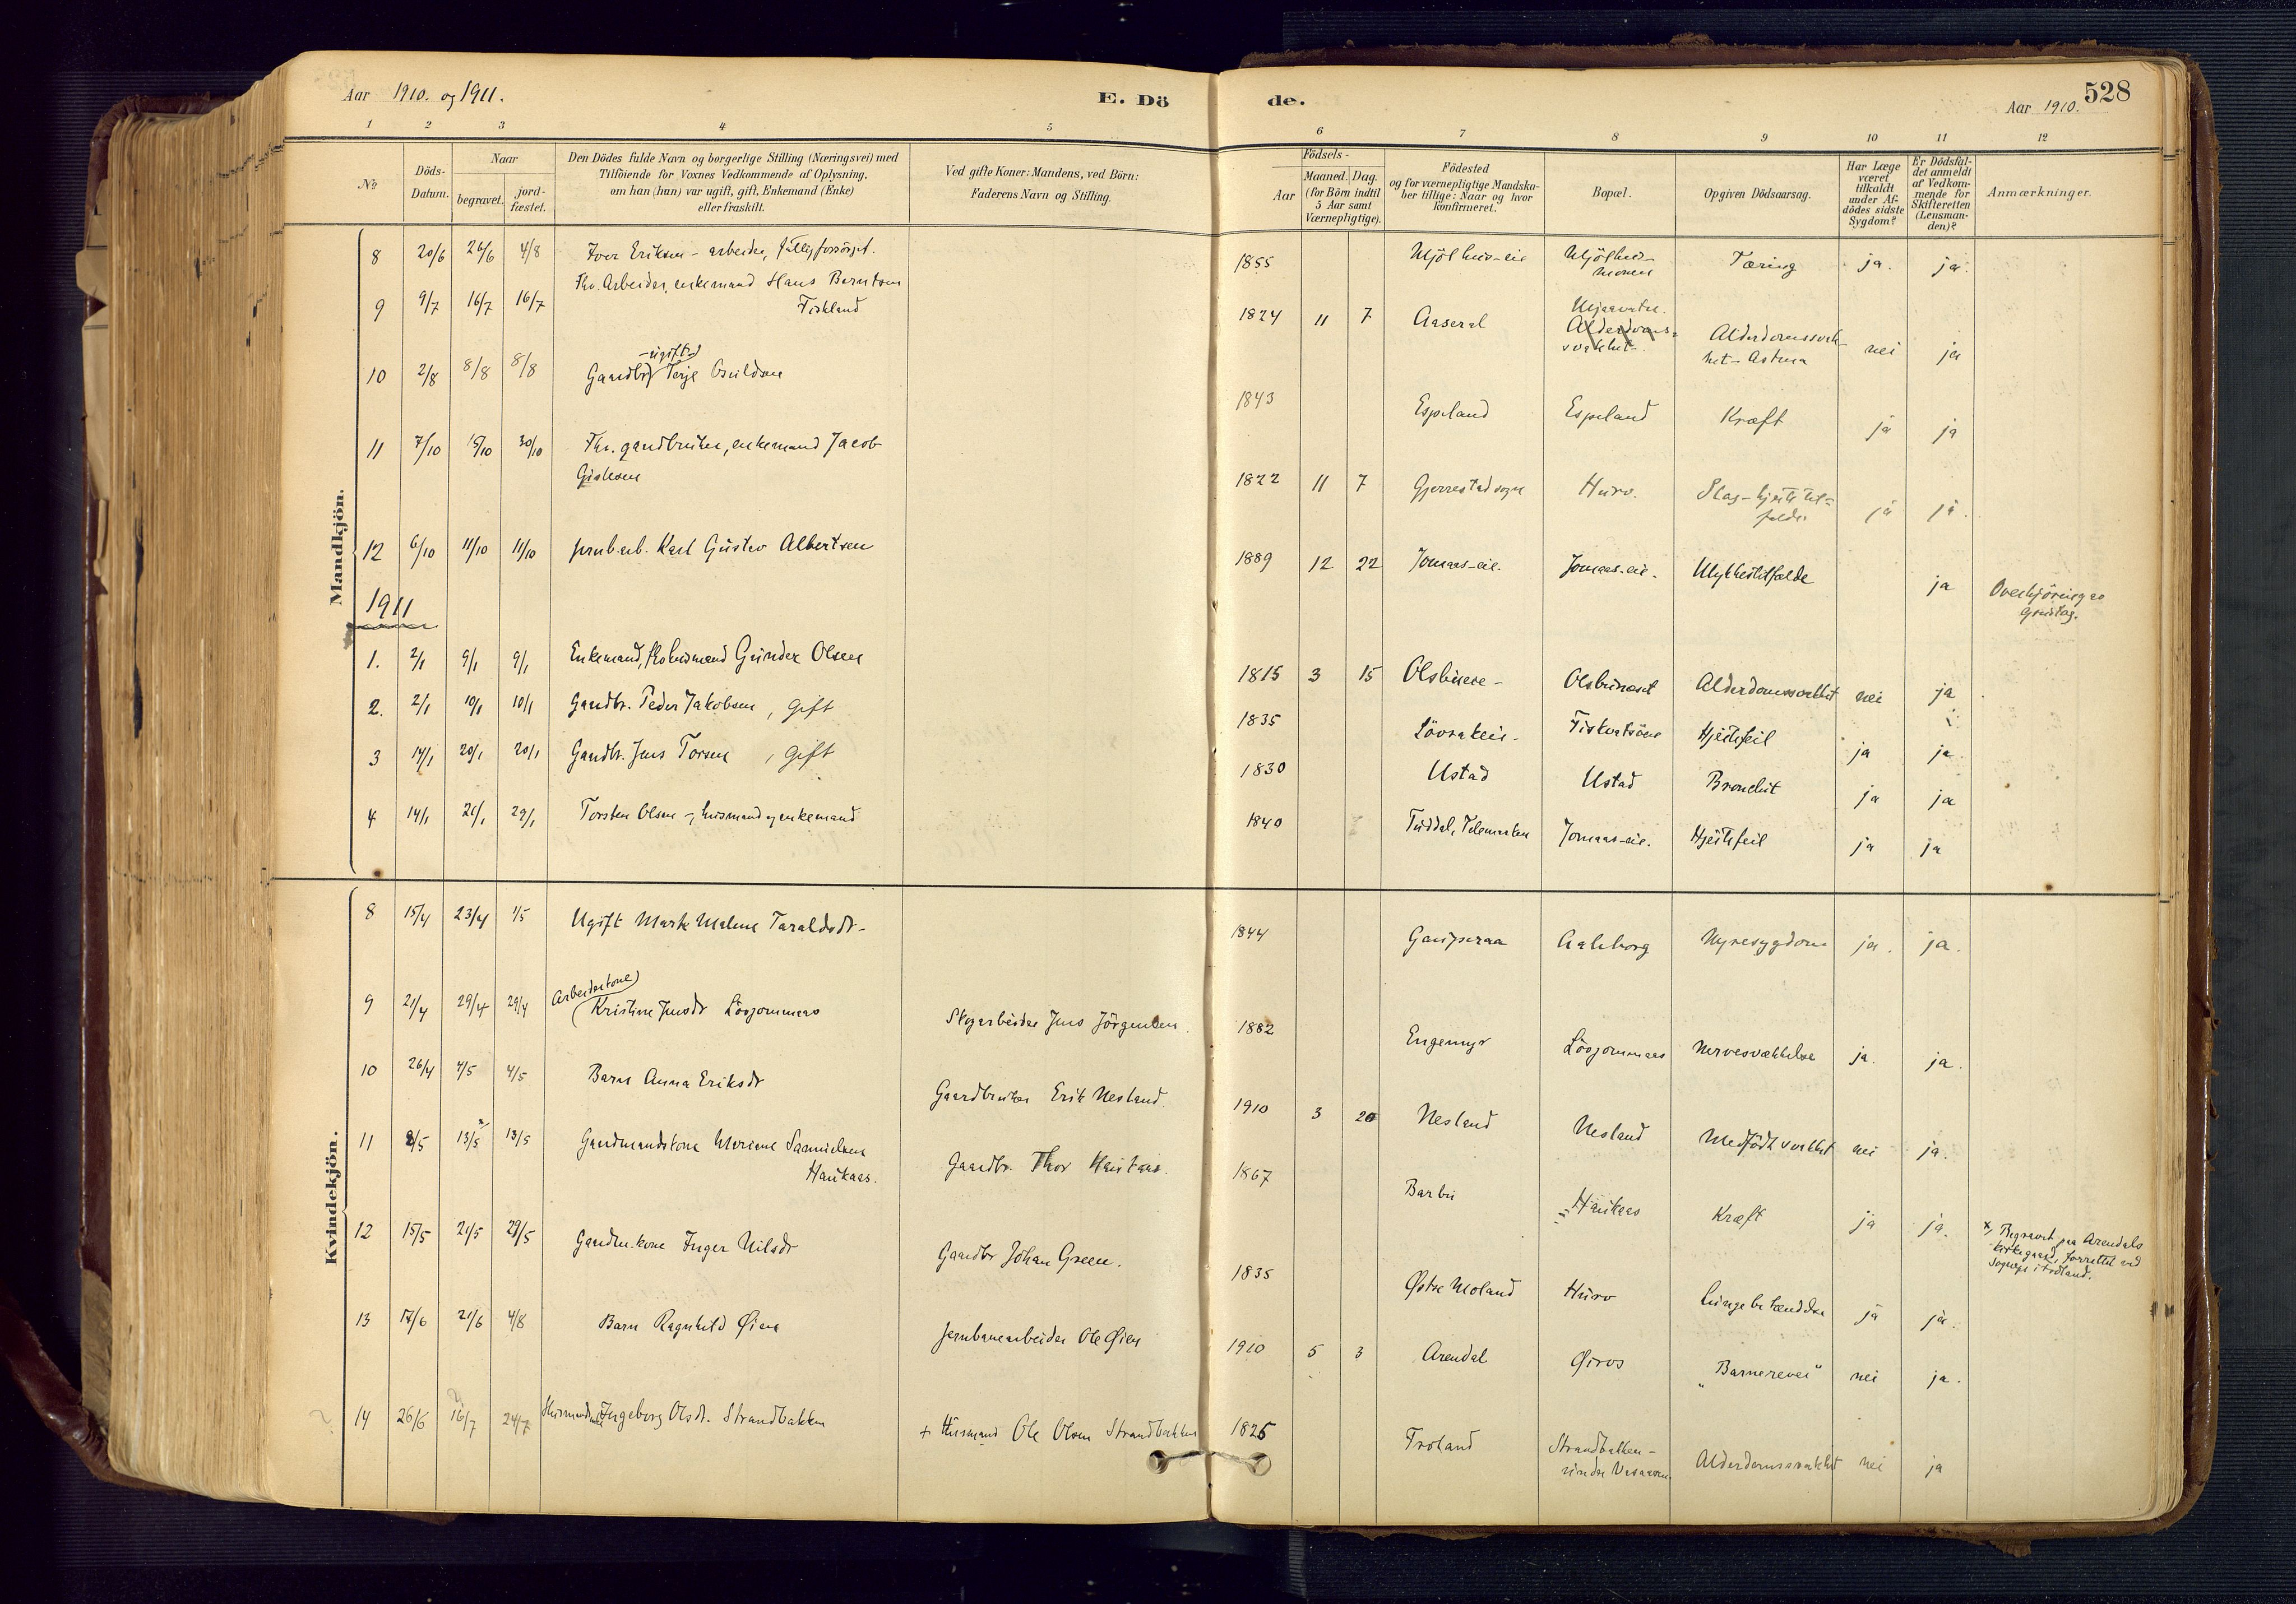 Aar 1910. og 1911.
E. Dö
de.
Aar 1910.
528
1 2 3 4 5 6 7 8 9 10 11 12
No
Döds-Datum.
Naar
begravet.
jord-fæstet.
Den Dödes fulde Navn og borgerlige Stilling (Næringsvei) med
Tilföiende for Voxnes Vedkommende af Oplysning,
om han (hun) var ugift, gift, Enkemand (Enke)
eller fraskilt.
Ved gifte Koner: Mandens, ved Börn:
Faderens Navn og Stilling.
Födsels-
Aar
Maaned. Dag.
(for Börn indtil
5 Aar samt
Værnepligtige).
Födested
og for værnepligtige Mandska-
ber tillige: Naar og hvor
konfirmeret.
Bopæl.
Opgiven Dödsaarsag.
Har Læge
været
tilkaldt
under Af-
dödes sidste
Sygdom?
Er Dödsfal-
det anmeldt
af Vedkom-
mende for
Skifteretten
(Lensman-
den)?
Anmærkninger.
Mandkjön.
8 20/6 26/6 4/8 Iver Eriksen - arbeider, fattigforsörget. 1855 Mjölhus-eie Mjölhus-moen Tæring ja. ja.
9 9/7 16/7 16/7 Fhv. Arbeider, enkemand Hans Berntsen
Fiskland 1824 11 7 Aaseral
Alderdoms-
svakhet- Alderdomssvak-
het - Astma nei ja
10 2/8 8/8 8/8 Gaardbr. - ugift - Terje 1843 Espeland Espeland Kræft ja ja
11 7/10 15/10 30/10 Fhv. gaardbruker, enkemand Jacob
Gislesen 1822 11 7 Gjerrestad sogn Hurv. Slag - hjerte til-
fælde ja ja.
12 6/10 11/10 11/10 jernb.arb. Karl Gustav Albertsen 1889 12 22 Jomaas-eie. Jomaas-eie. Ulykkestilfælde ja Overkjöring av
grustog.
1911
1. 2/1 9/1 9/1 Enkemand, Gunder Olsen 1815 3 15 Olsbu Alderdomssvakhet nei ja
2. 2/1 10/1 10/1 Gaardbr. Peder Jakobsen, gift 1835 Lövrakeie- Hjertefeil ja ja.
3 14/1 20/1 20/1 Gaardbr. Jens Torsen, gift 1830 Ustad Ustad Bronchit ja ja
4 14/1 21/1 29/1 Torsten Olsen -, husmand og enkemand 1840 Tuddal, Telemarken Jomaas-eie. Hjertefeil ja ja
Kvindekjön.
8 15/4 23/4 1/5 Ugift Marte Malene Taraldsdr- 1844 Gauperaa Aaleborg Nyresygdom ja. ja.
9 21/4 29/4 29/4 Arbeiderkone
Kristine Jensdr Lövjommaas Skogarbeider Jens Jörgensen. 1882 Engemyr Lövjommaas Nervesvækkelse ja. ja.
10 26/4 4/5 4/5 Barn Anna Eriksdr Gaardbruker Erik Nesland. 1910 3 20 Nesland Nesland Medfödt svakhet nei ja.
11 8/5 13/5 x 13/5 Gaardmandskone Mariane Samuelsen
Haukaas. Gaardbr. Thor Haukaas. 1867 Barbu Haukaas Kræft ja ja.
x, Begravet paa Arendals
kirkegaard, forrettet ved
sognepr i Froland.
12 15/5 21/5 29/5 Gaardm.kone Inger Nilsdr Gaardbr Johan Green. 1835 Østre Moland Hurv Lungebetændelse ja ja.
13 17/6 21/6 4/8 Barn Ragnhild Øien Jernbanearbeider Ole Øien 1910 5 3 Arendal Øivos "Barnerevei" nei ja.
14 26/6 16/7 24/7 Ingeborg Olsdr. Strandbakken + Husmand Ole Olsen Strandbakken 1825 Froland Strandbakken-
under Alderdomssvakhet nei ja